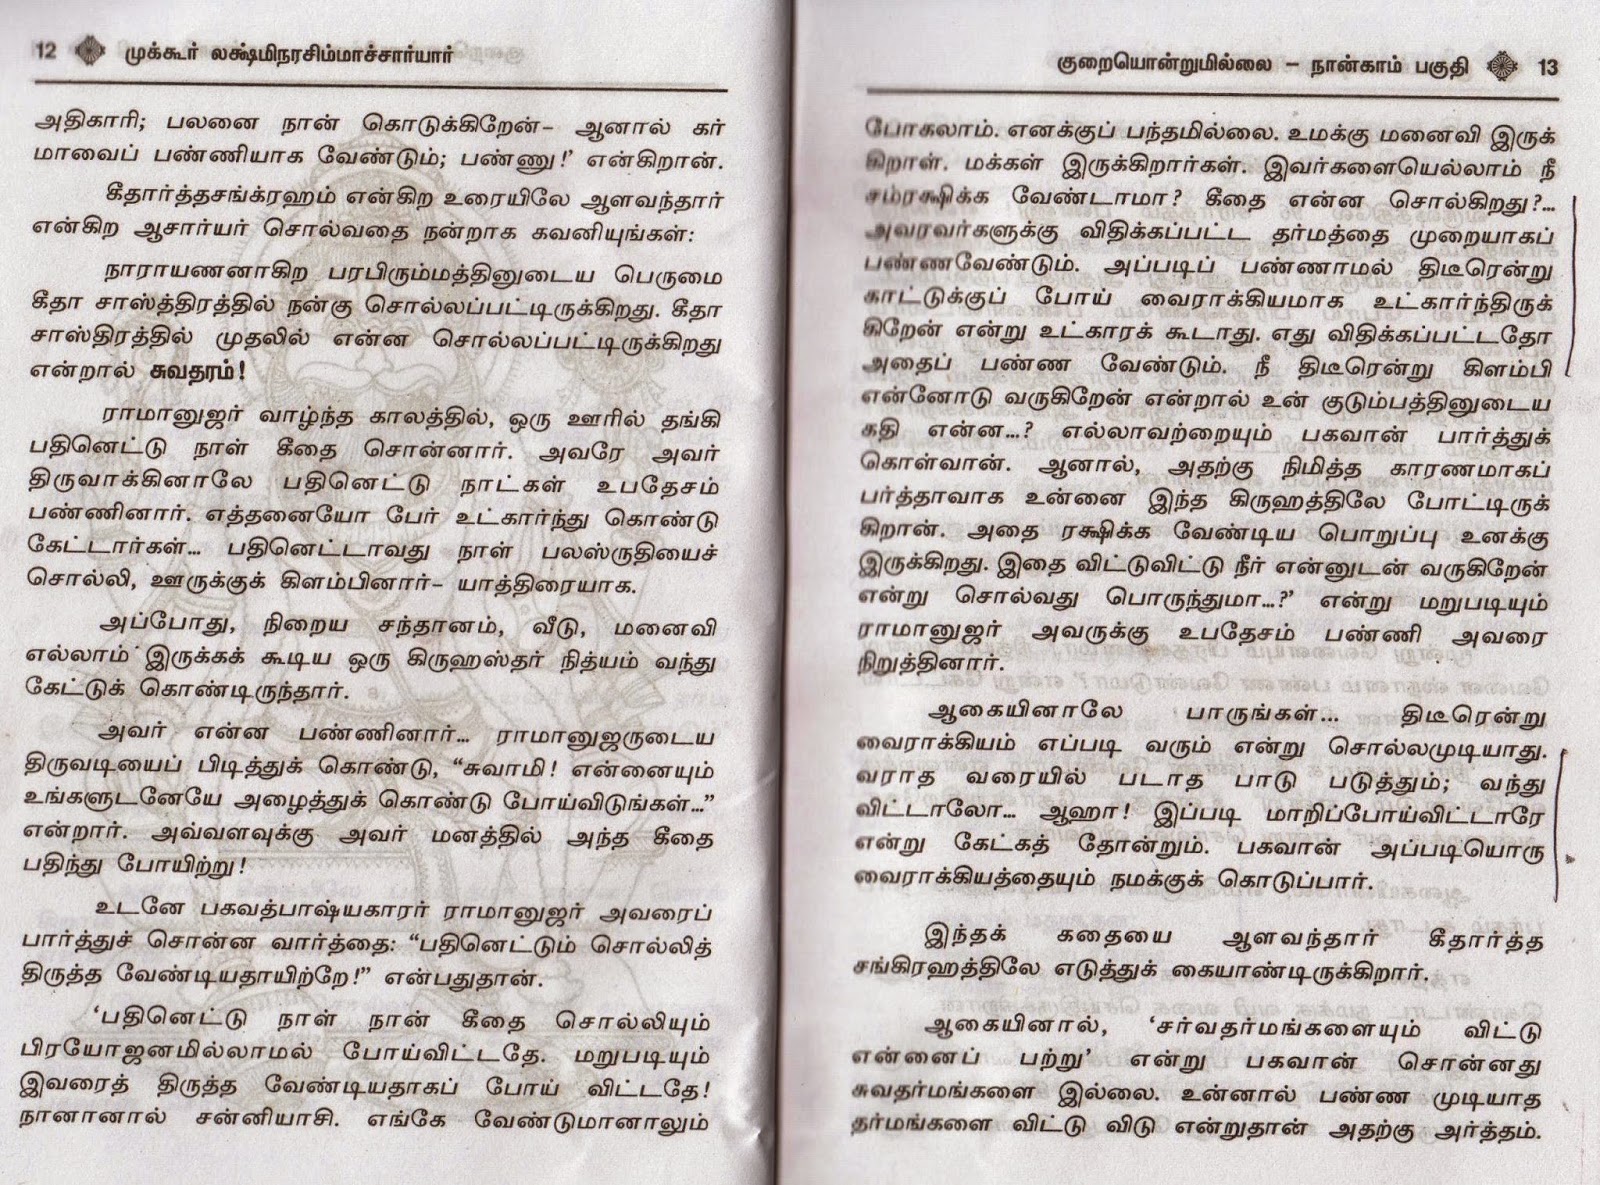 12 முக்கூர் லக்ஷ்மிநரசிம்மாச்சார்யார்
அதிகாரி; பலனை நான் கொடுக்கிறேன்– ஆனால் கர்
மாவைப் பண்ணியாக வேண்டும்; பண்ணு!’ என்கிறான்.
கீதார்த்தசங்க்ரஹம் என்கிற உரையிலே ஆளவந்தார்
என்கிற ஆசார்யர் சொல்வதை நன்றாக கவனியுங்கள்:
நாராயணனாகிற பரபிரும்மத்தினுடைய பெருமை
கீதா சாஸ்த்திரத்தில் நன்கு சொல்லப்பட்டிருக்கிறது. கீதா
சாஸ்திரத்தில் முதலில் என்ன சொல்லப்பட்டிருக்கிறது
என்றால் சுவதரம்!
ராமானுஜர் வாழ்ந்த காலத்தில், ஒரு ஊரில் தங்கி
பதினெட்டு நாள் கீதை சொன்னார். அவரே அவர்
திருவாக்கினாலே பதினெட்டு நாட்கள் உபதேசம்
பண்ணினார். எத்தனையோ பேர் உட்கார்ந்து கொண்டு
கேட்டார்கள்... பதினெட்டாவது நாள் பலஸ்ருதியைச்
சொல்லி, ஊருக்குக் கிளம்பினார்– யாத்திரையாக.
அப்போது, நிறைய சந்தானம், வீடு, மனைவி
எல்லாம் இருக்கக் கூடிய ஒரு கிருஹஸ்தர் நித்யம் வந்து
கேட்டுக் கொண்டிருந்தார்.
அவர் என்ன பண்ணினார்... ராமானுஜருடைய
திருவடியைப் பிடித்துக் கொண்டு, “சுவாமி! என்னையும்
உங்களுடனேயே அழைத்துக் கொண்டு போய்விடுங்கள்...”
என்றார். அவ்வளவுக்கு அவர் மனத்தில் அந்த கீதை
பதிந்து போயிற்று!
உடனே பகவத்பாஷ்யகாரர் ராமானுஜர் அவரைப்
பார்த்துச் சொன்ன வார்த்தை: “பதினெட்டும் சொல்லித்
திருத்த வேண்டியதாயிற்றே!” என்பதுதான்.
‘பதினெட்டு நாள் நான் கீதை சொல்லியும்
பிரயோஜனமில்லாமல் போய்விட்டதே. மறுபடியும்
இவரைத் திருத்த வேண்டியதாகப் போய் விட்டதே!
நானானால் சன்னியாசி. எங்கே வேண்டுமானாலும்
குறையொன்றுமில்லை – நான்காம் பகுதி 13
போகலாம். எனக்குப் பந்தமில்லை. உமக்கு மனைவி இருக்
கிறாள். மக்கள் இருக்கிறார்கள். இவர்களையெல்லாம் நீ
சம்ரக்ஷிக்க வேண்டாமா? கீதை என்ன சொல்கிறது?...
அவரவர்களுக்கு விதிக்கப்பட்ட தர்மத்தை முறையாகப்
பண்ணவேண்டும். அப்படிப் பண்ணாமல் திடீரென்று
காட்டுக்குப் போய் வைராக்கியமாக உட்கார்ந்திருக்
கிறேன் என்று உட்காரக் கூடாது. எது விதிக்கப்பட்டதோ
அதைப் பண்ண வேண்டும். நீ திடீரென்று கிளம்பி
என்னோடு வருகிறேன் என்றால் உன் குடும்பத்தினுடைய
கதி என்ன...? எல்லாவற்றையும் பகவான் பார்த்துக்
கொள்வான். ஆனால், அதற்கு நிமித்த காரணமாகப்
பர்த்தாவாக உன்னை இந்த கிருஹத்திலே போட்டிருக்
கிறான். அதை ரக்ஷிக்க வேண்டிய பொறுப்பு உனக்கு
இருக்கிறது. இதை விட்டுவிட்டு நீர் என்னுடன் வருகிறேன்
என்று சொல்வது பொருந்துமா...?’ என்று மறுபடியும்
ராமானுஜர் அவருக்கு உபதேசம் பண்ணி அவரை
நிறுத்தினார்.
ஆகையினாலே பாருங்கள்... திடீரென்று
வைராக்கியம் எப்படி வரும் என்று சொல்லமுடியாது.
வராத வரையில் படாத பாடு படுத்தும்; வந்து
விட்டாலோ... ஆஹா! இப்படி மாறிப்போய்விட்டாரே
என்று கேட்கத் தோன்றும். பகவான் அப்படியொரு
வைராக்கியத்தையும் நமக்குக் கொடுப்பார்.
இந்தக் கதையை ஆளவந்தார் கீதார்த்த
சங்கிரஹத்திலே எடுத்துக் கையாண்டிருக்கிறார்.
ஆகையினால், ‘சர்வதர்மங்களையும் விட்டு
என்னைப் பற்று’ என்று பகவான் சொன்னது
சுவதர்மங்களை இல்லை. உன்னால் பண்ண முடியாத
தர்மங்களை விட்டு விடு என்றுதான் அதற்கு அர்த்தம்.